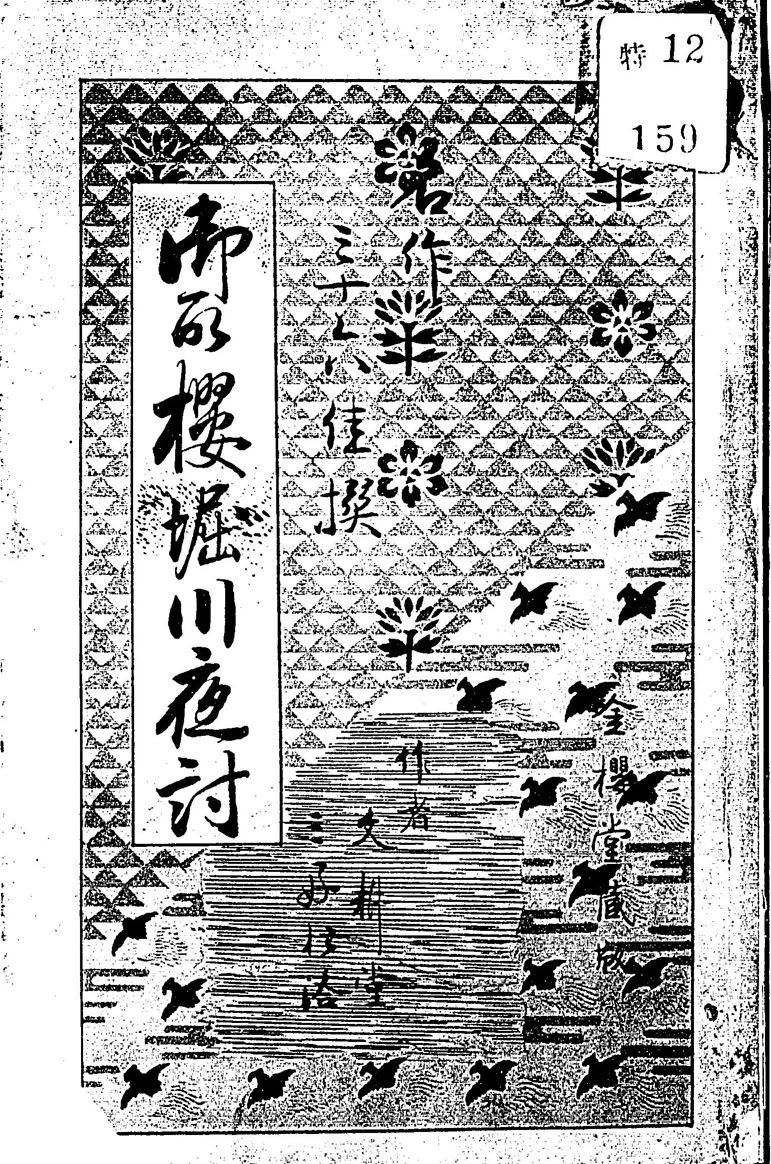 特 12
159
名作
三十六佳撰
御所櫻堀川夜討
作者
文耕堂
三好松洛
金櫻堂蔵版